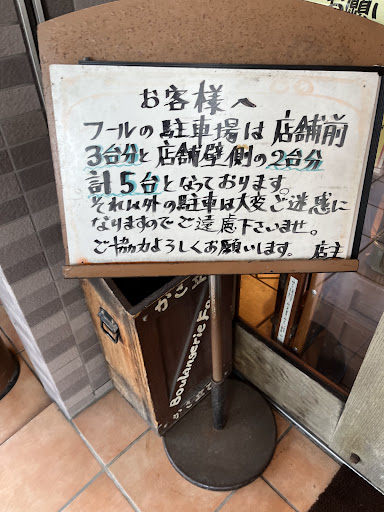 お願い
お客様へ
フールの駐車場は店舗前
3台分と店舗壁側の2台分
計5台となっております。
それ以外の駐車は大変ご迷惑に
なりますのでご遠慮下さいませ。
ご協力よろしくお願いします。 店主
Boulangerie